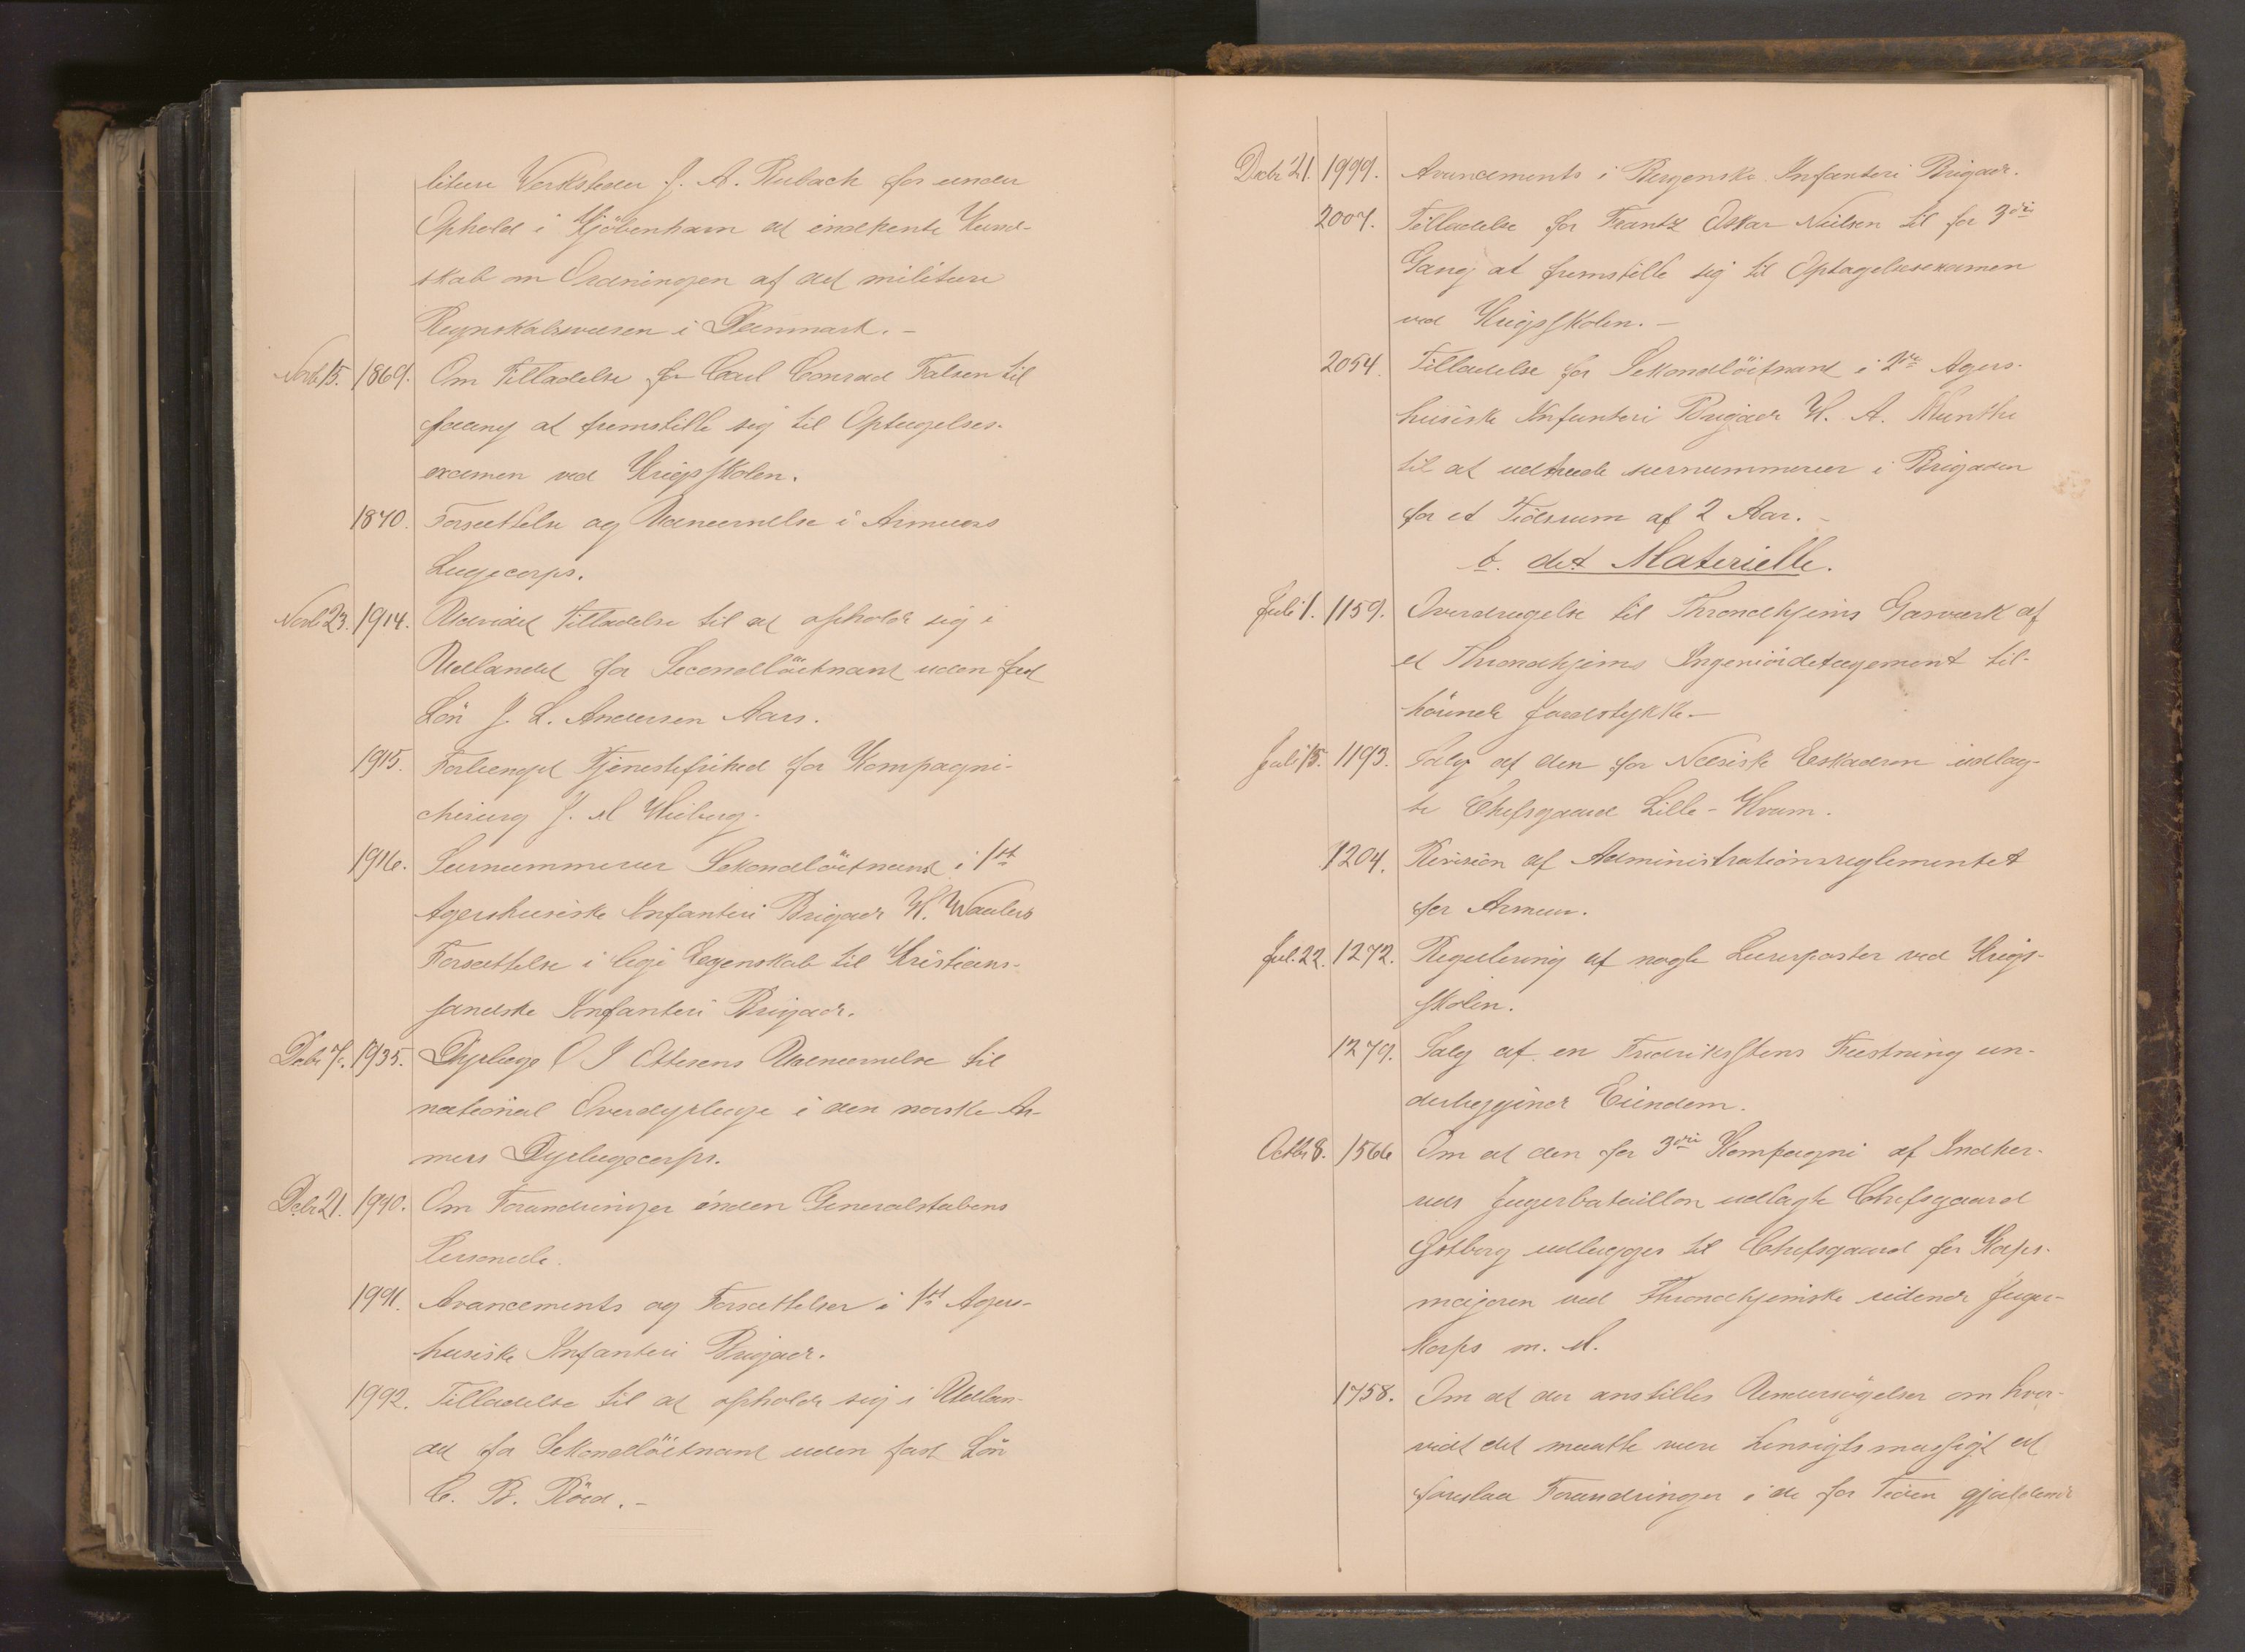 litære Verksteder J. A. Ruback for under
Ophold i Kjöbenhavn at indhente Kund-
skab om Ordningen af det militære
Regnskabsvæsen i Danmark. -
Novb. 15. 1869. Om Tilladelse for Carl Conrad Falsen til
paany at fremstille sig til Optagelses-
examen ved Krigsskolen.
1870. Forsættelse og Udnævnelse i Armeens
Lægecorps.
Novb. 23. 1914. Udvidet Tilladelse til at opholde sig i
Udlandet for Secondlöitnant uden fast
Lön J. L. Andersen Aars.
1915. Forlænget Tjenestefrihed for Kompagni-
chirurg J. M Wiberg.
1916. Surnummerær Sekondlöitnant i 1ste
Agershusiske Infanteri Brigade H.
Forsættelse i lige Egenskab til Kristians-
sandske Infanteri Brigade.
Debr. 7. 1935. Dyrlæge O J Ottesens Udnævnelse til
national Overdyrlæge i den norske Ar-
mees Dyrlægecorps.
Debr 21. 1990. Om Forandringer inden Generalstabens
Personele.
1991. Avancements og Forsættelser i 1ste Agers-
husiske Infanteri Brigade.
1992. Tilladelse til at opholde sig i Udlan-
det for Sekondlöitnant uden fast Lön
C. B. Röed. -
Debr 21. 1999. Avancements i Bergenske Infanteri Brigade.
2007. Tilladelse for Frantz Oskar Nielsen til for 3die
Gang at fremstille sig til Optagelsesexamen
ved Krigsskolen. -
2054. Tilladelse for Sekondlöitnant i 2den Agers-
husiske Infanteri Brigade H. A. Munthe
til at udtræde surnummerær i Brigaden
for et Tidsrum af 2 Aar. -
b. det Materielle.
Juli 1. 1159. Overdragelse til Throndhjems Gasværk af
et Throndhjems Ingeniördetagement til-
hörende Jordstykke. -
Juli 15. 1193. Salg af den for Næsiske Eskadron udlag-
te Chefsgaard Lille-Hvam.
1204. Revision af Administrationsreglementet
for Armeen.
Jul. 22. 1272. Regulering af nogle Lærerposter ved Krigs-
skolen.
1279. Salg af en Fredrikstens Fæstning un-
derliggende Eiendom.
Octbr 8. 1566 Om at den for 3die Kompagni af Inder-
øens Jægerbataillon udlagte Chefsgaard
Östborg udlægges til Chefsgaard for Korps-
majoren ved Throndhjemske ridende Jæger-
korps m. M.
1758. Om at der anstilles Undersögelser om hvor-
vidt det maatte være hensigtsmæssigt at
foreslaa Forandringer i de for Tiden gjældende